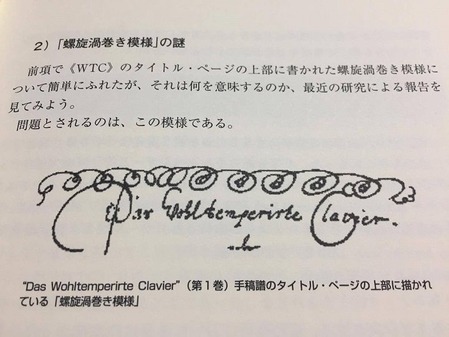 2）「螺旋渦巻き模様」の謎
前項で《WTC》のタイトル・ページの上部に書かれた螺旋渦巻き模様に
ついて簡単にふれたが、それは何を意味するのか、最近の研究による報告を
見てみよう。
問題とされるのは、この模様である。
Das Wohltemperirte Clavier.
“Das Wohltemperirte Clavier”（第1巻）手稿譜のタイトル・ページの上部に描かれ
ている「螺旋渦巻き模様」